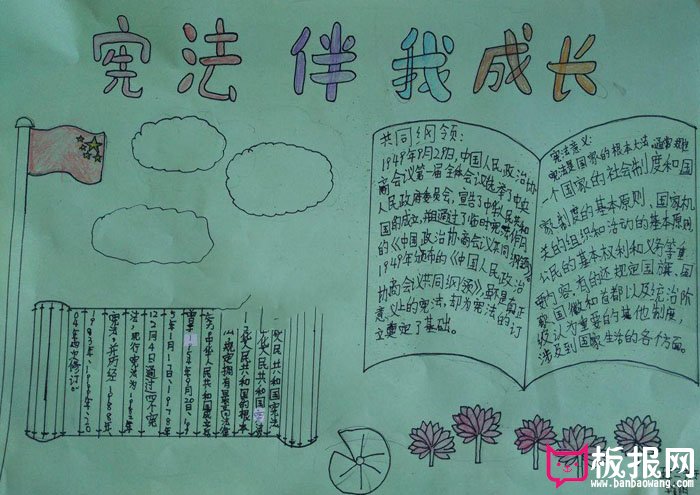 宪法伴我成长
共同纲领：
1949年9月29日，中国人民政治协
商会议第一届全体会议选举了中央
人民政府委员会，宣告了中华人民共和
国的成立，并且通过了临时宪法作用
的《中国政治协商会议共同纲领》
1949年颁布的《中国人民政治
协商会议共同纲领》，都是真正
意义上的宪法，却为宪法的订
立奠定了基础。
宪法意义：
宪法是国家的根本大法，通常规
一个国家的社会制度和国
家制度的基本原则、国家机
关的组织和活动的基本原则
公民的基本权利和义务等重
要内容，有的还规定国旗、国
歌、国徽和首都以及统治阶
级认为重要的其他制度，
涉及到国家生活的各个方面。
民共和国宪法
华人民共和国
华民共和国的根本
规定拥有最高法律
中华人民共和国成立后
54年9月20日、19
5年1月17日、1978年
12月4日通过四个宪
法，现行宪法为1982年
宪法，并历经1988年
1993年、1999年、20
04年四次修订。
板报网
www.banbaowang.com